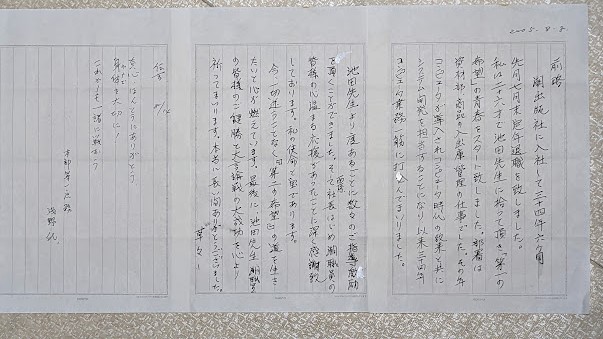 2005. 8. 8.
前略
潮出版社に入社して三十四年六ヵ月
先月七月末定年退職を致しました。
私は二十六才で池田先生に拾って頂き「第一の
希望の青春をスタート致しました。部署は
資材部・商品の入出庫管理の仕事でした。その年
コンピュータが導入されコンピュータ時代の到来と共に
システム開発を担当することになり以来三十四年
コンピュータ業務一筋に打込んでまいりました。
池田先生より度あるごとに数々のご指導・激励
を頂くことができました。そして社長はじめ潮職員の
皆様の心温まる応援があったことに深く感謝致
しております。私の使命で宝であります。
今一切迷うことなく「第二の希望」の道を生き
たいと心が燃えています。最後に池田先生、潮職員
の皆様のご健勝と文言論戦の大成功を心より
祈ってまいります。本当に長い間ありがとうございました。
草々
伝言 8/12
真心、ほんとうにありがとう
身体を大切に!
これからも一緒に戦おう
本部第一庶務